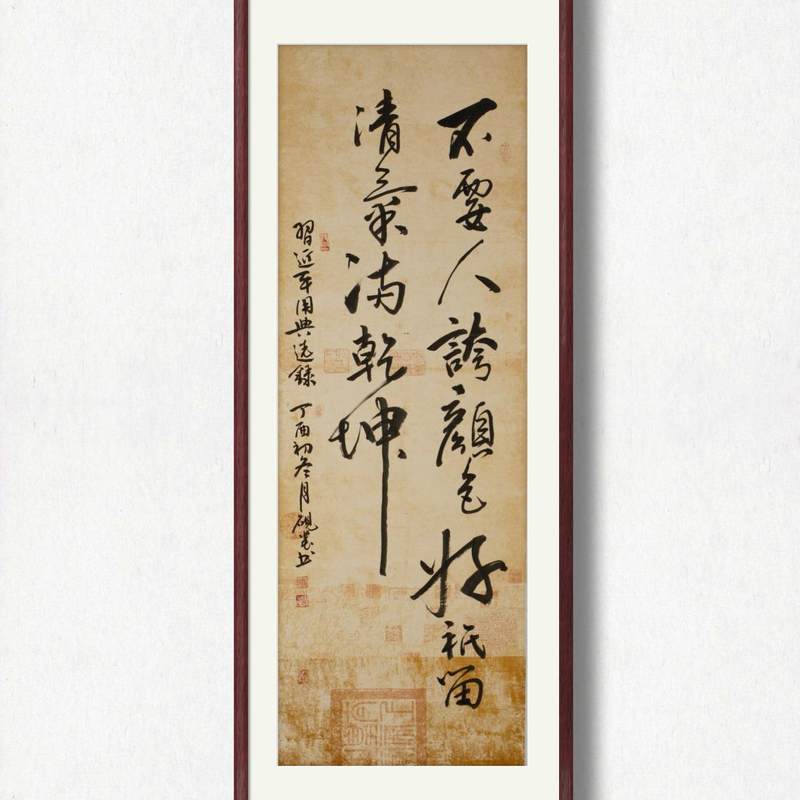 不要人誇顏色好祇留
清氣滿乾坤
習近平用典选錄 丁酉初冬月硯農书